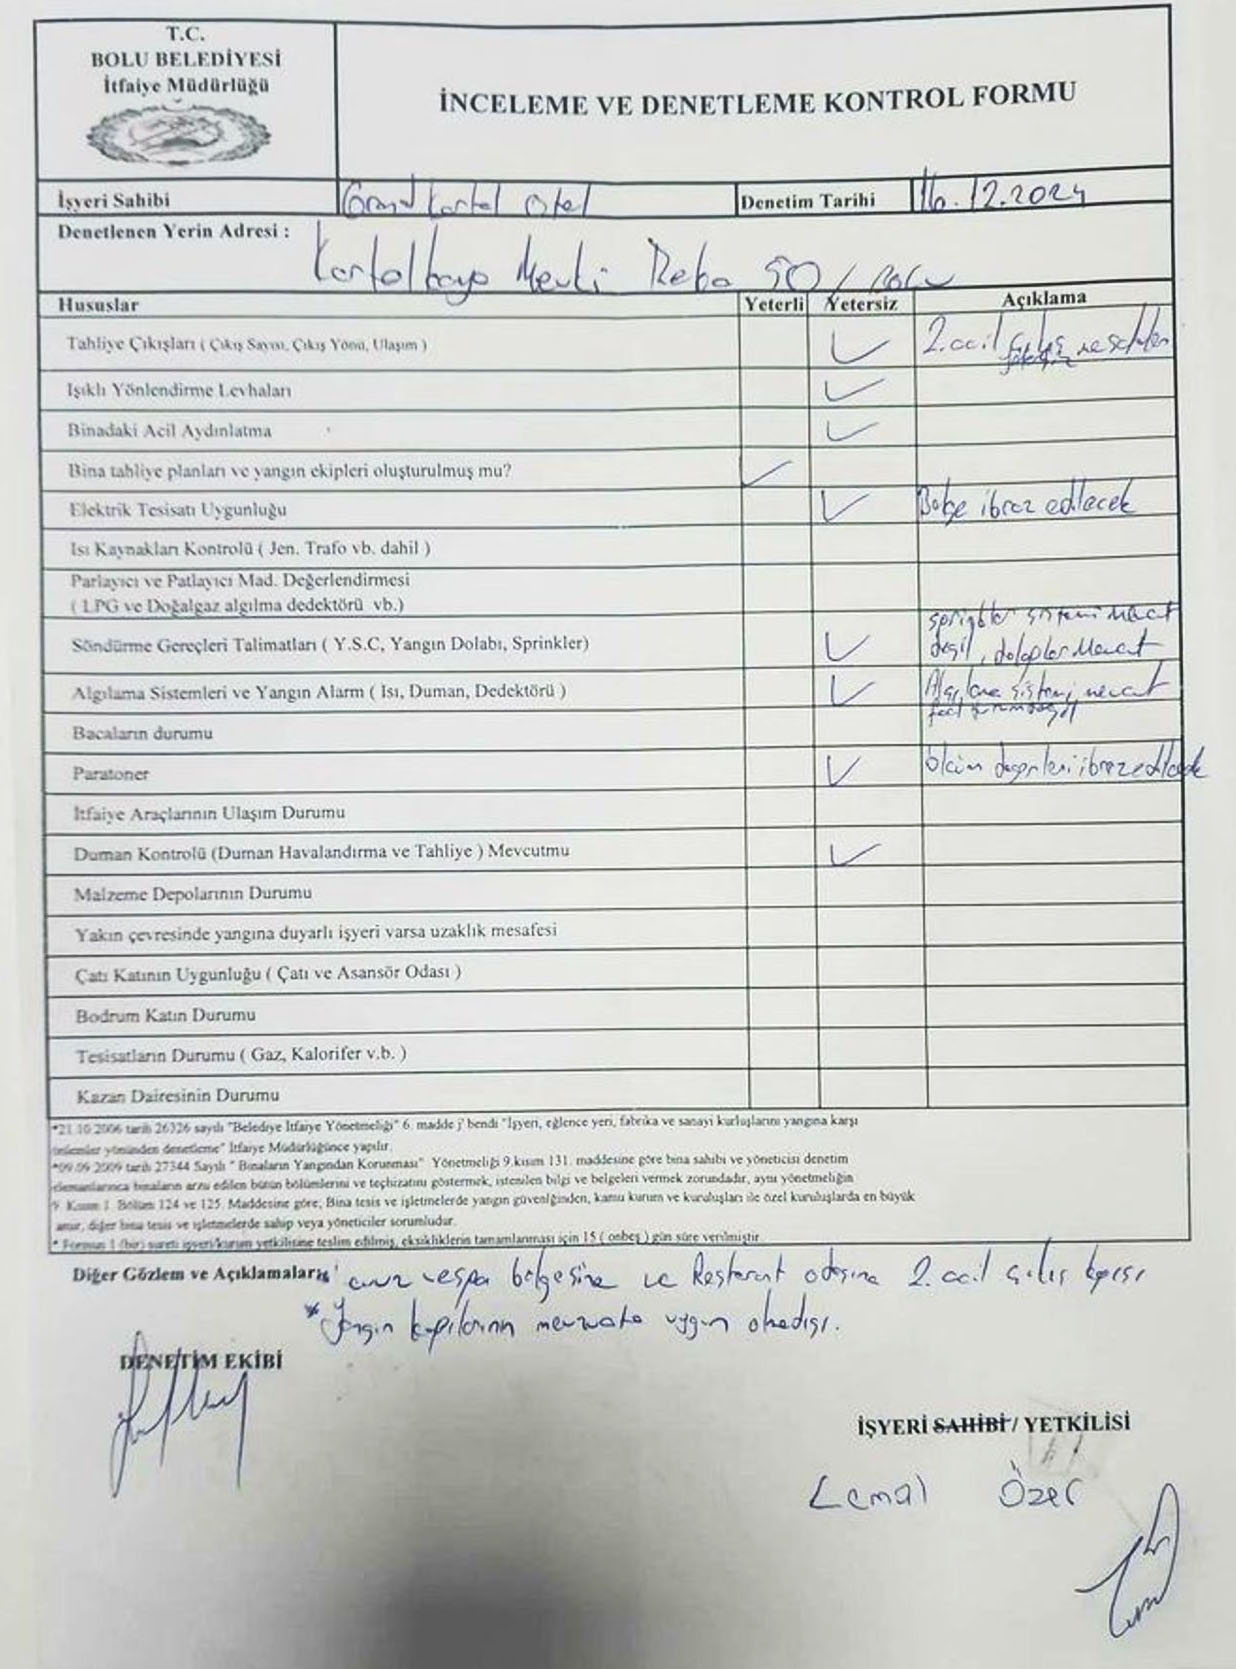 T.C.
BOLU BELEDİYESİ
İtfaiye Müdürlüğü
İNCELEME VE DENETLEME KONTROL FORMU
İşyeri Sahibi Grand Kartal Otel Denetim Tarihi 16.12.2024
Denetlenen Yerin Adresi : Kartalkaya Mevki 50/Bolu
Hususlar Yeterli Yetersiz Açıklama
Tahliye Çıkışları ( Çıkış Sayısı, Çıkış Yönü, Ulaşım ) ✓ 2. acil çıkış
Işıklı Yönlendirme Levhaları ✓
Binadaki Acil Aydınlatma ✓
Bina tahliye planları ve yangın ekipleri oluşturulmuş mu? ✓
Elektrik Tesisatı Uygunluğu ✓ Belge ibraz edilecek
Isı Kaynakları Kontrolü ( Jen. Trafo vb. dahil )
Parlayıcı ve Patlayıcı Mad. Değerlendirmesi
( LPG ve Doğalgaz algılma dedektörü vb.)
Söndürme Gereçleri Talimatları ( Y.S.C, Yangın Dolabı, Sprinkler) ✓ sprinkler sistemi mevcut
değil, dolaplar Mevcut
Algılama Sistemleri ve Yangın Alarm ( Isı, Duman, Dedektörü ) ✓ Algılama sistemi mevcut
Bacaların durumu
Paratoner ✓ ölçüm değerleri ibraz edilecek
İtfaiye Araçlarının Ulaşım Durumu
Duman Kontrolü (Duman Havalandırma ve Tahliye ) Mevcutmu ✓
Malzeme Depolarının Durumu
Yakın çevresinde yangına duyarlı işyeri varsa uzaklık mesafesi
Çatı Katının Uygunluğu ( Çatı ve Asansör Odası )
Bodrum Katın Durumu
Tesisatların Durumu ( Gaz, Kalorifer v.b. )
Kazan Dairesinin Durumu
*21.10.2006 tarih 26326 sayılı "Belediye İtfaiye Yönetmeliği" 6. madde j' bendi "İşyeri, eğlence yeri, fabrika ve sanayi kurluşlarını yangına karşı
önlemler yönünden denetleme" İtfaiye Müdürlüğünce yapılır.
*09.09.2009 tarih 27344 Sayılı " Binaların Yangından Korunması" Yönetmeliği 9.kısım 131. maddesine göre bina sahibi ve yöneticisi denetim
elemanlarınca binaların arzu edilen bütün bölümlerini ve teçhizatını göstermek, istenilen bilgi ve belgeleri vermek zorundadır, aynı yönetmeliğin
Kısım 1. Bölüm 124 ve 125. Maddesine göre; Bina tesis ve işletmelerde yangın güvenliğinden, kamu kurum ve kuruluşları ile özel kuruluşlarda en büyük
amir, diğer bina tesis ve işletmelerde sahip veya yöneticiler sorumludur.
* Formun 1 (bir) sureti işyeri/kurum yetkilisine teslim edilmiş, eksikliklerin tamamlanması için 15 ( onbeş ) gün süre verilmiştir.
Diğer Gözlem ve Açıklamalar: bölgesine ve Restorant odasına 2. acil çıkış kapısı
* Yangın kapılarının mevzuata uygun olmadığı.
DENETİM EKİBİ
İŞYERİ SAHİBİ / YETKİLİSİ
Cemal Özer